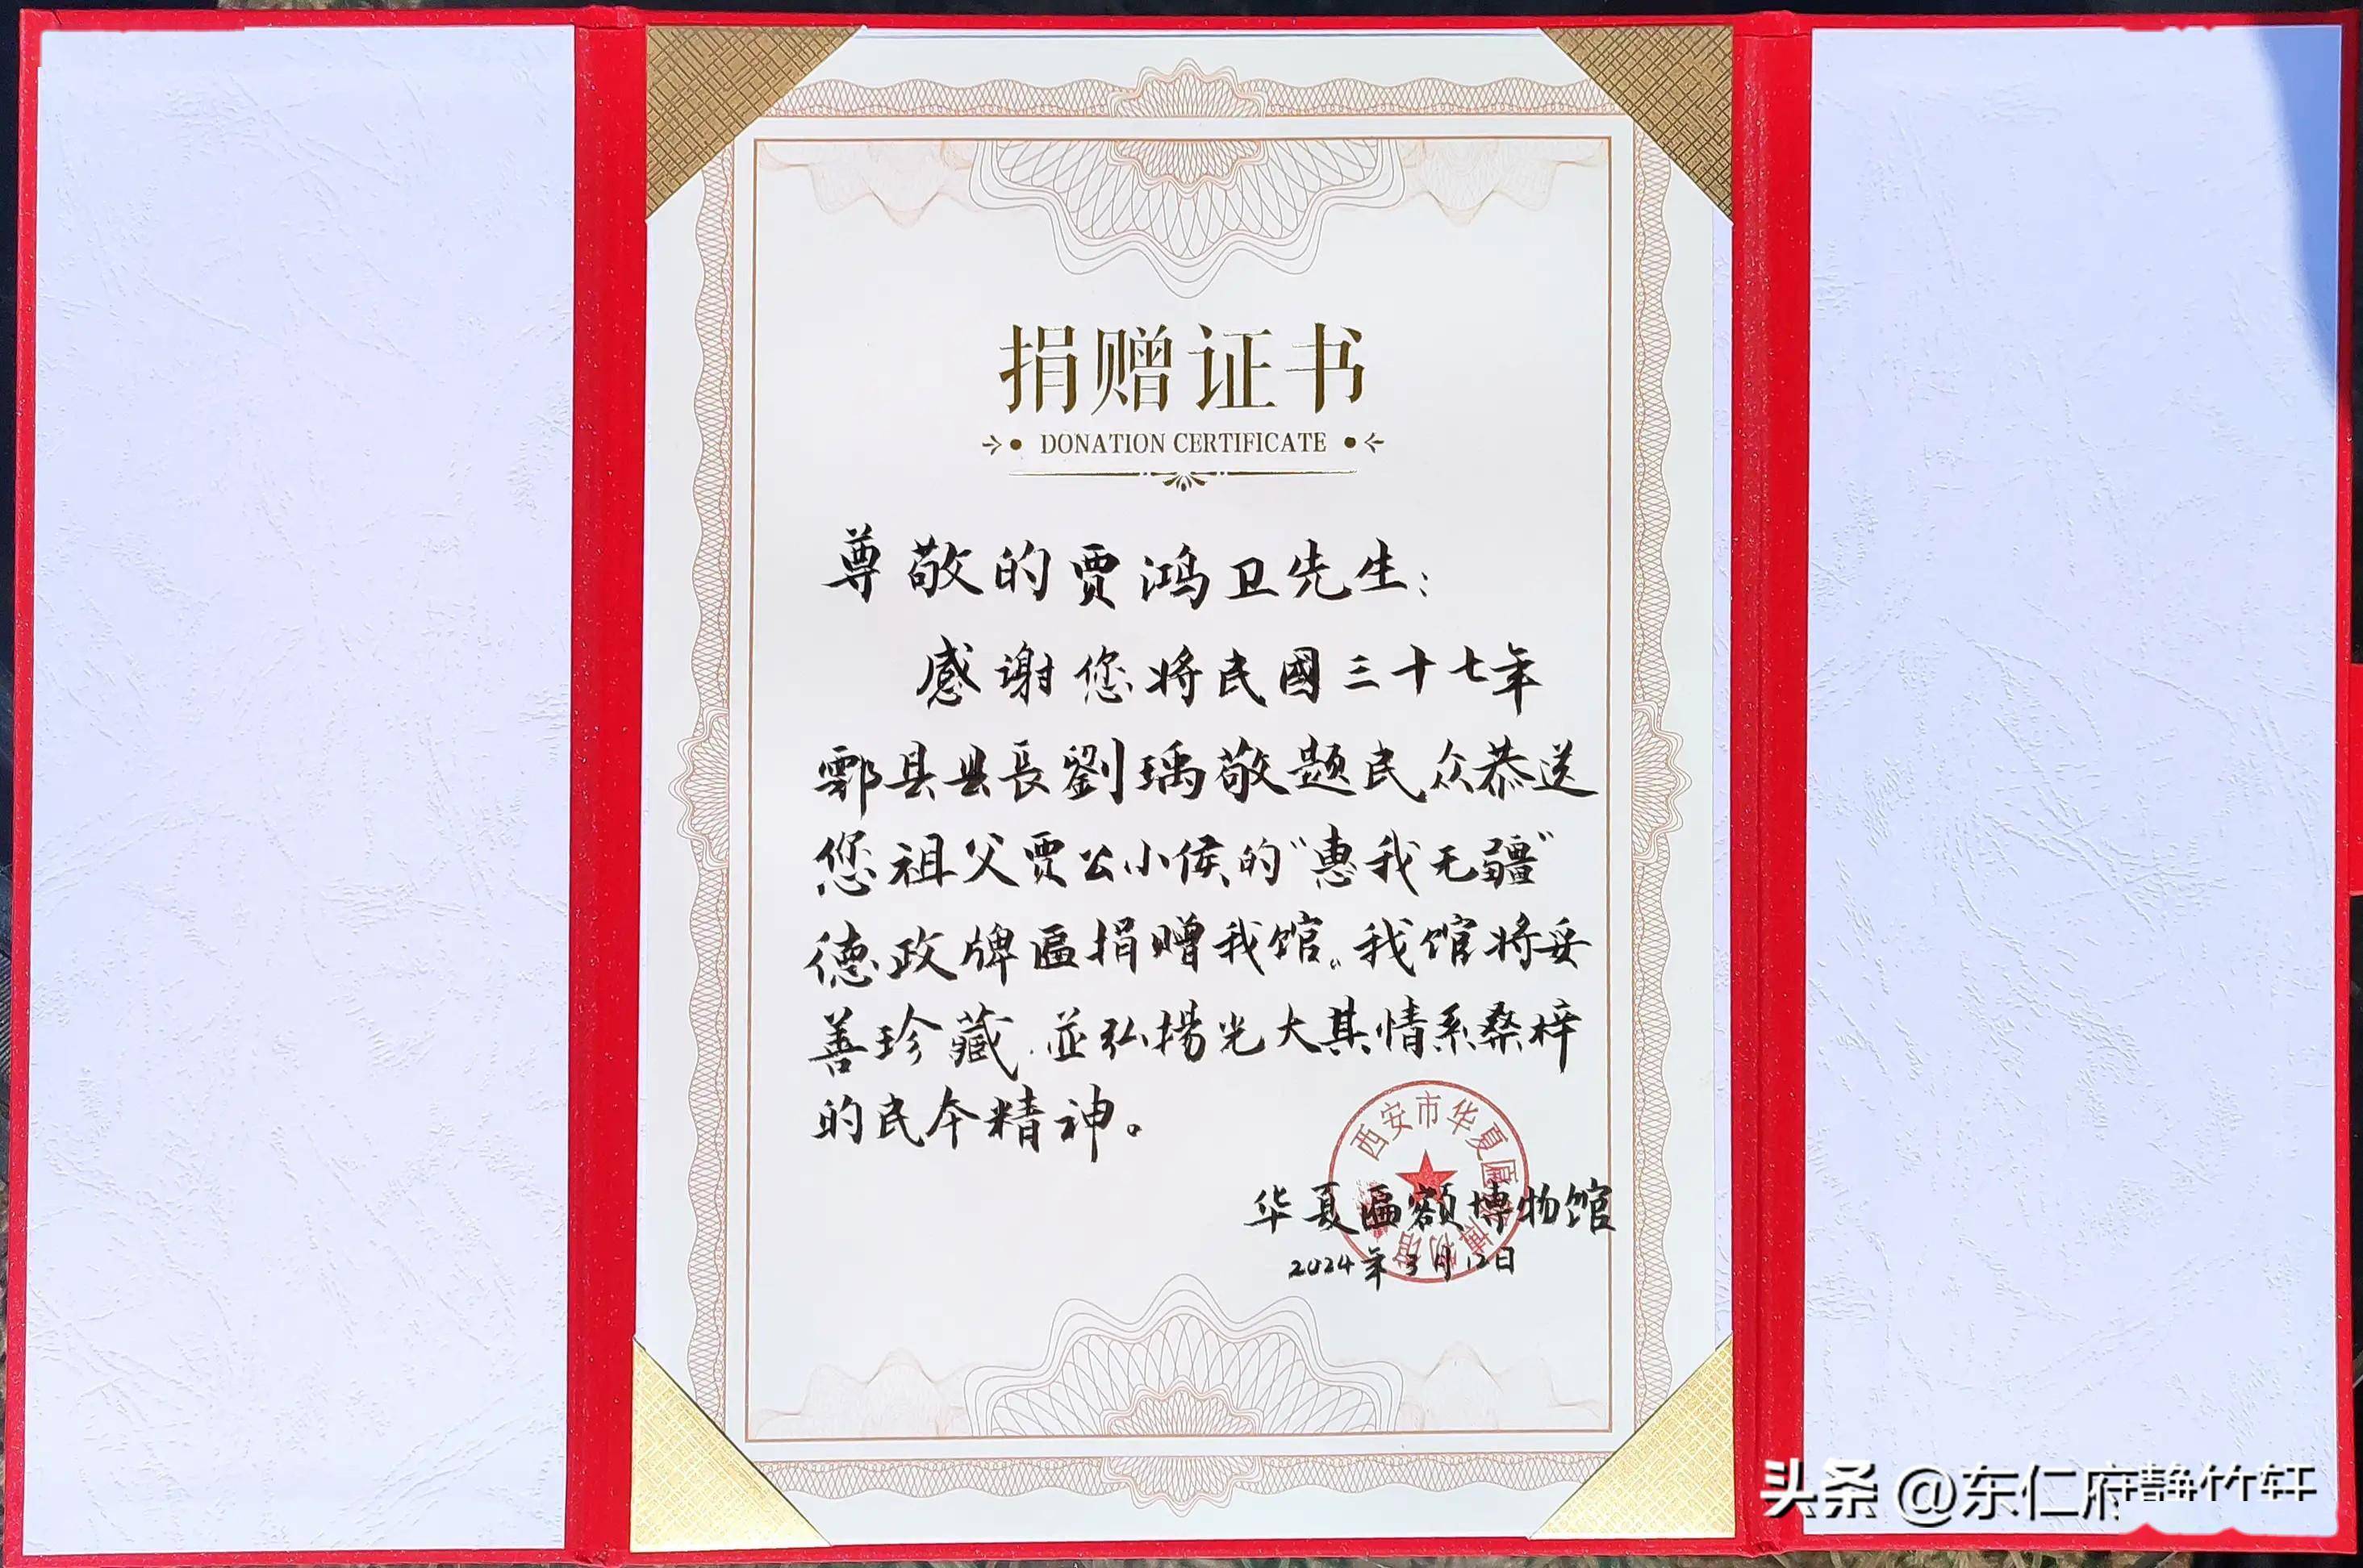 捐赠证书
DONATION CERTIFICATE
尊敬的贾鸿卫先生:
感谢您将民國三十七年
鄠县县長劉瑀敬题民众恭送
您祖父贾公小侯的“惠我无疆”
德政牌匾捐赠我馆。我馆将妥
善珍藏.並弘揚光大其情系桑梓
的民本精神。
西安市华夏匾额博物馆
华夏匾额博物馆
2024年3月12日
头条 @东仁府静竹轩